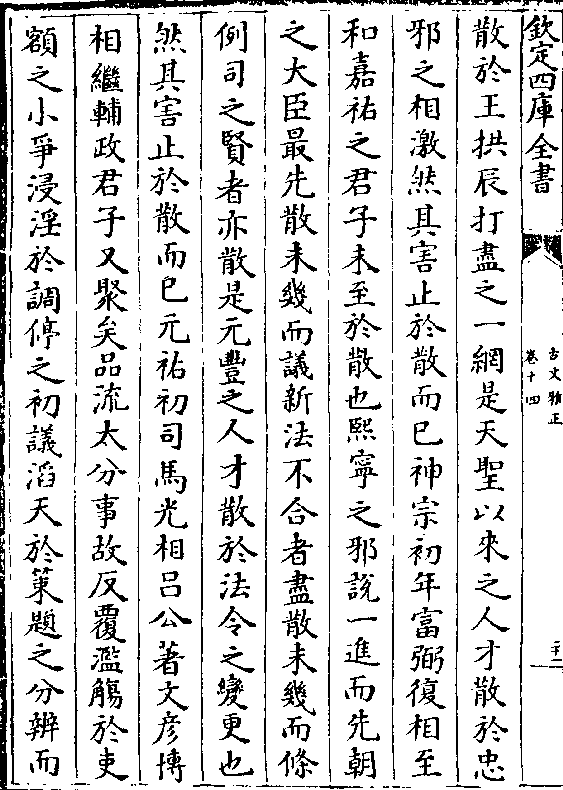 欽定四庫全書
古文雅正
卷十四
二十二
散於王拱辰打盡之一網是天聖以來之人才散於忠
邪之相激然其害止於散而已神宗初年富弼復相至
和嘉祐之君子未至於散也熙寧之邪說一進而先朝
之大臣最先散未幾而議新法不合者盡散未幾而條
例司之賢者亦散是元豐之人才散於法令之變更也
然其害止於散而已元祐初司馬光相吕公著文彦博
相繼輔政君子又聚矣品流太分事故反覆濫觴於吏
額之小爭浸淫於調停之初議滔天於䇿題之分辨而